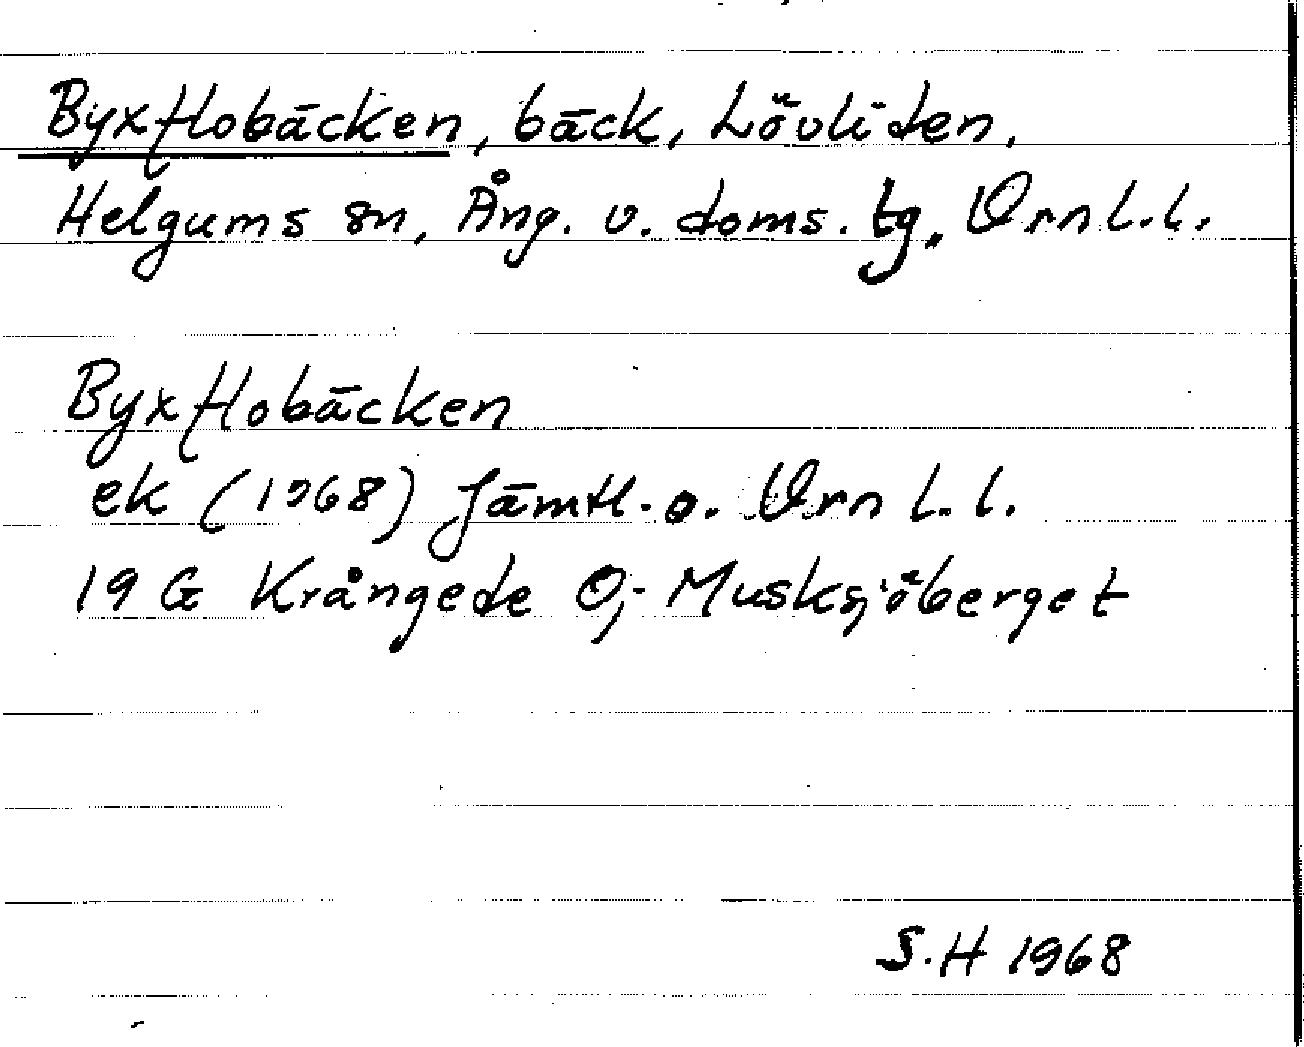 Byxflobäcken, bäck, Lövliden,
Helgums sn, Ång. v. doms. tg. Vrn l. l.
Byxflobäcken
ek (1968) Jämtl. o. Vrn l. l.
19 G Krångede Oj- Musksjöberget
S.H 1968